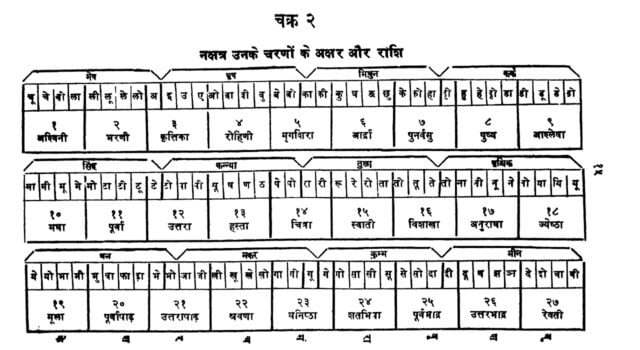 चक्र २
नक्षत्र उनके चरणों के अक्षर और राशि
मेष वृष मिथुन कर्क
चू चे चो ला ली लू ले लो अ इ उ ए ओ वा वी वु वे वो का की कु घ ङ छ के को हा ही हु हे हो डा डी डू डे डो
१ २ ३ ४ ५ ६ ७ ८ ९
अश्विनी भरणी कृत्तिका रोहिणी मृगशिरा आर्द्रा पुनर्वसु पुष्य आश्लेषा
सिंह कन्या तुला वृश्चिक
मा मी मू मे मो टा टी टू टे टो पा पी पू ष ण ठ पे पो रा री रू रे रो ता ती तू ते तो ना नी नू ने नो या यि यू
१० ११ १२ १३ १४ १५ १६ १७ १८
मघा पूर्वा उत्तरा हस्ता चित्रा स्वाती विशाखा अनुराधा ज्येष्ठा
धन मकर कुम्भ मीन
ये यो भा भी भु धा फा ढा भे भो जा जी खी खू खे खो गा गी गू गे गो सा सी सू से सो दा दी दू थ झ ञ दे दो चा ची
१९ २० २१ २२ २३ २४ २५ २६ २७
मूला पूर्वाषाढ़ उत्तराषाढ़ श्रवणा धनिष्ठा शतभिषा पूर्वभाद्र उत्तरभाद्र रेवती